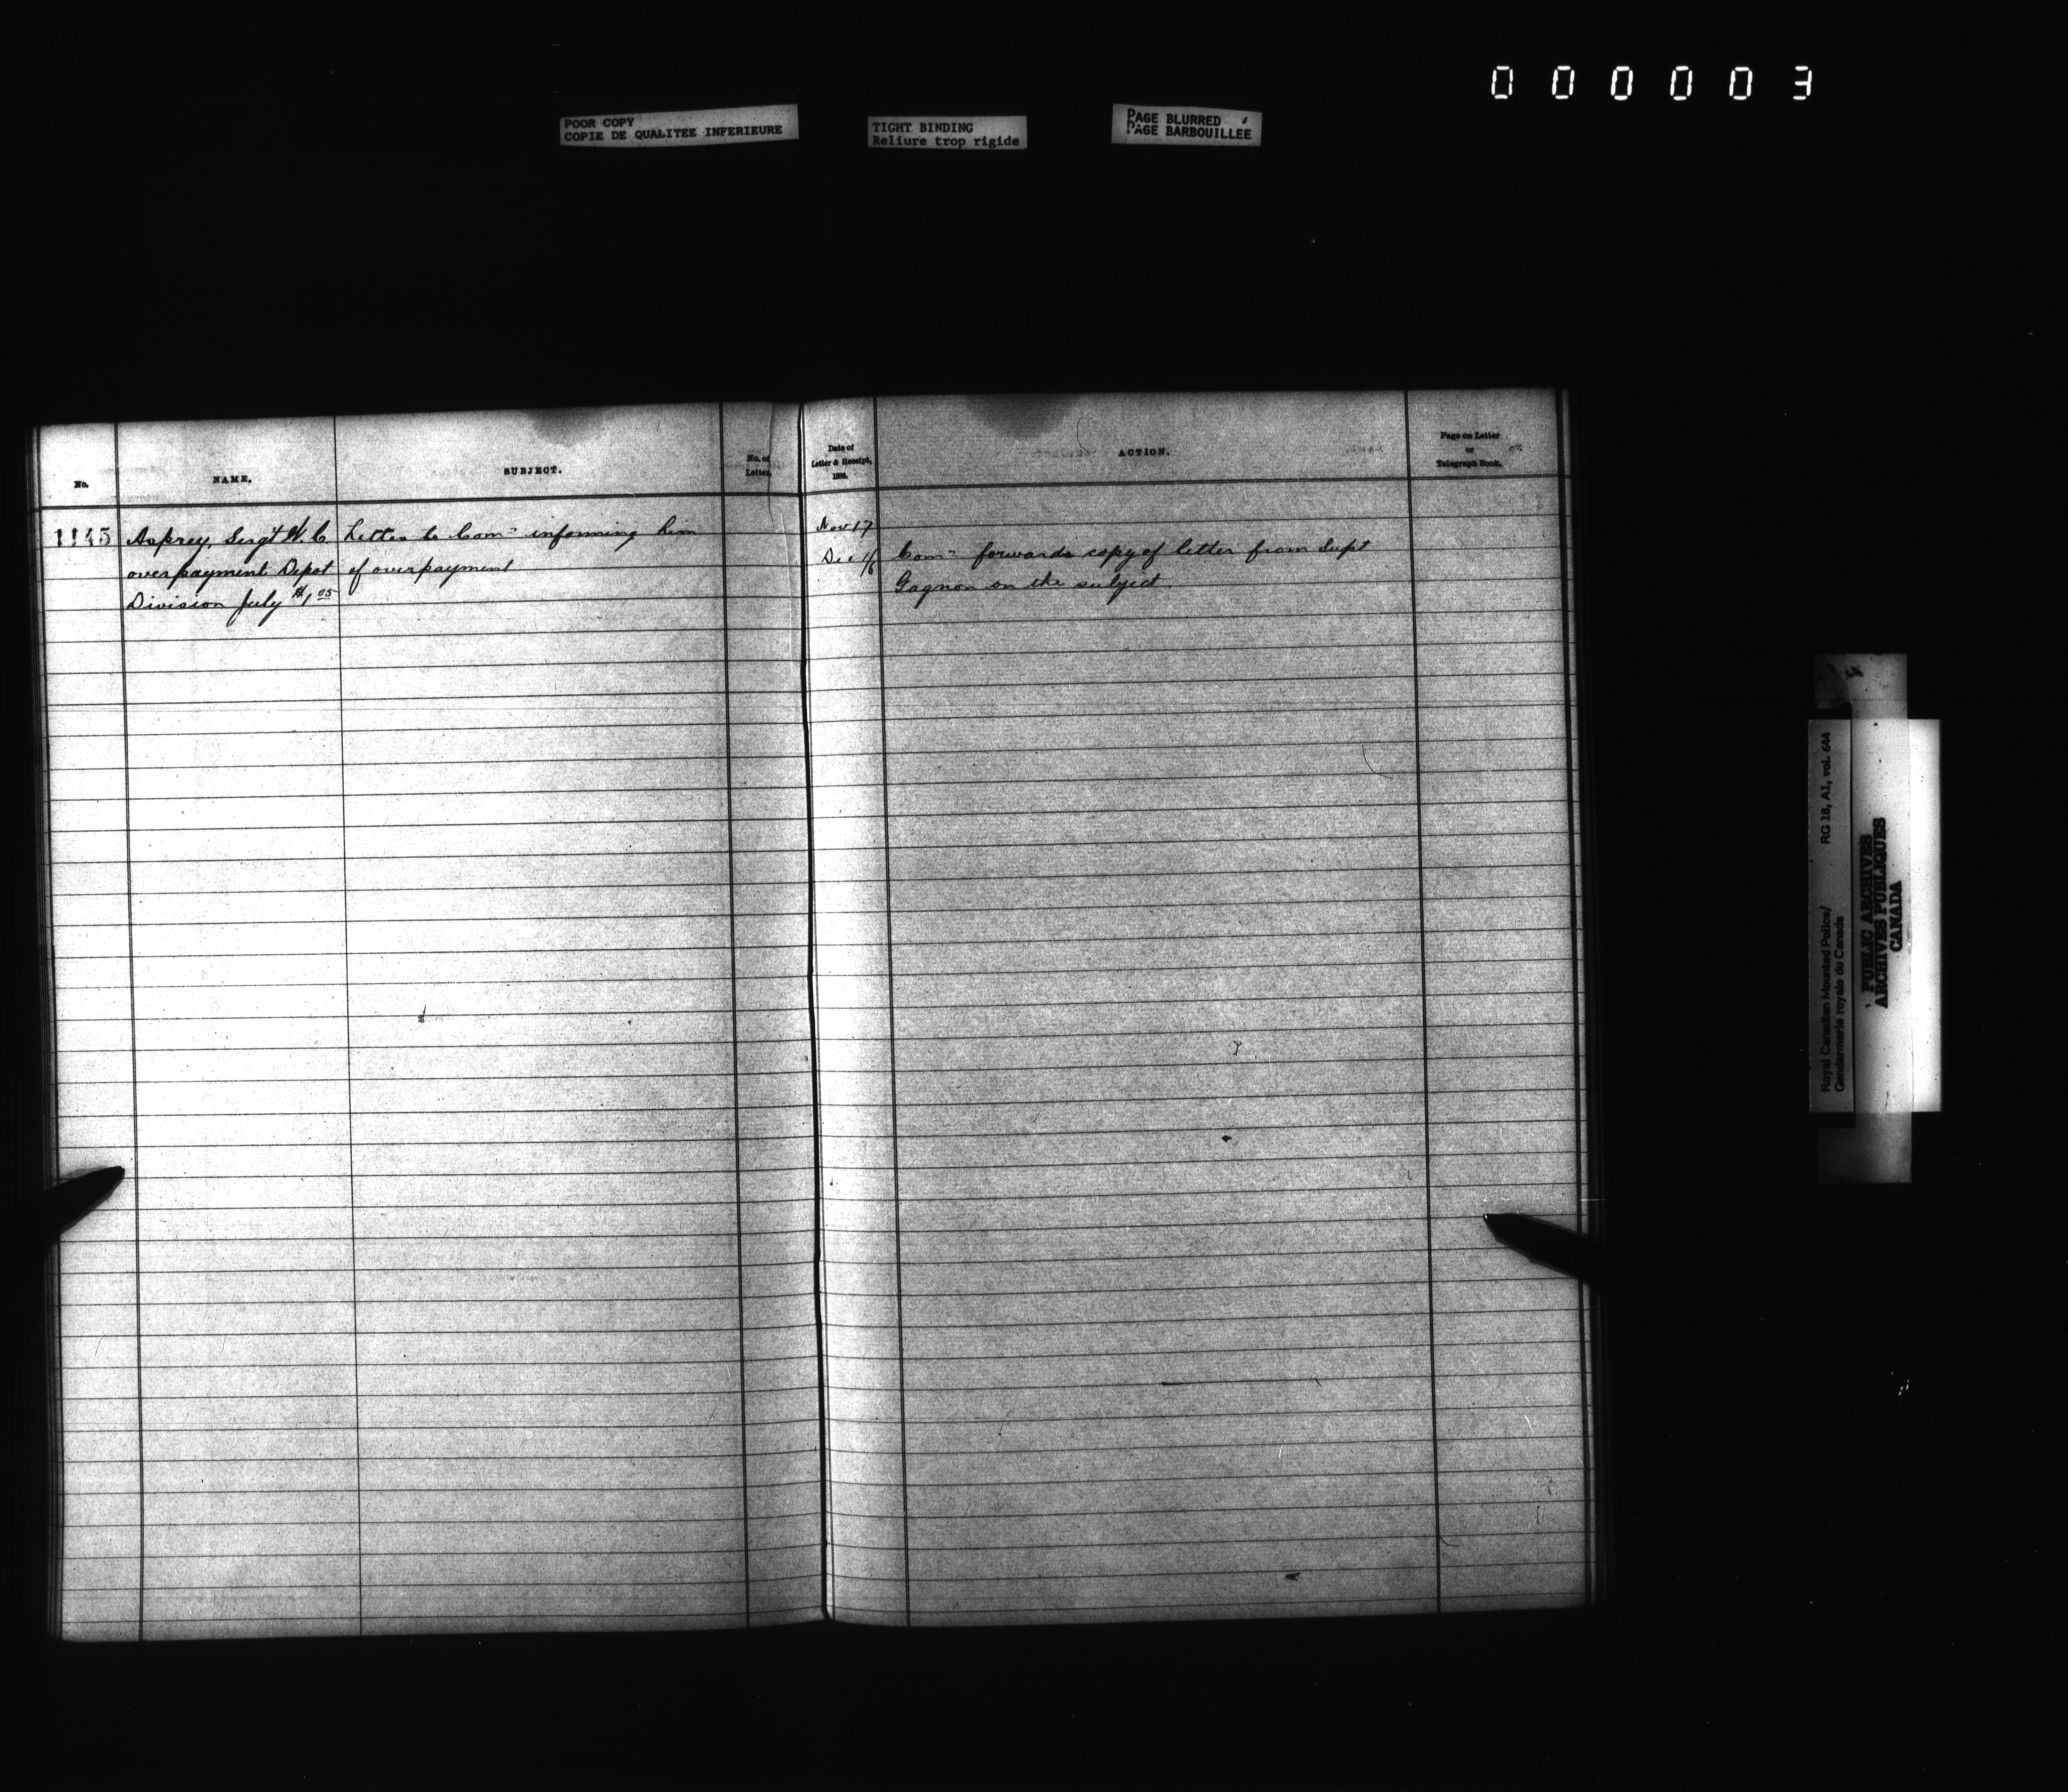 000003
POOR COPY
COPIE DE QUALITEE INFERIEURE
TIGHT BINDING
Reliure trop rigide
PAGE BLURRED
PAGE BARBOUILLEE
No.
NAME.
SUBJECT.
No. of
Letter.
Date of
Letter & Receipt,
ACTION.
Page on Letter
or
Telegraph Book.
1145
Asprey, Sergt W. C
overpayment Depot
Division July $1.05
Letter to Comr informing him
of overpayment
Nov 17
Dec 1/6
Comr forwards copy of letter from Supt
Gagnon on the subject
Royal Canadian Mounted Police/
Gendarmerie royale du Canada
RG 18, A1, vol. 644
PUBLIC ARCHIVES
ARCHIVES PUBLIQUES
CANADA